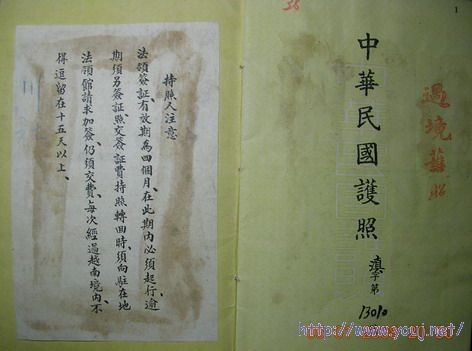 持照人注意
法領簽証,有效期為四個月,在此期內必須起行,逾
期須另簽証照交簽証費,持照轉回時,須向駐在地
法領館請求加簽,仍須交費,每次經過越南境內,不
得逗留在十五天以上、
1
36
過境護照
中華民國護照
滇字第
13010
http://www.youj.net/